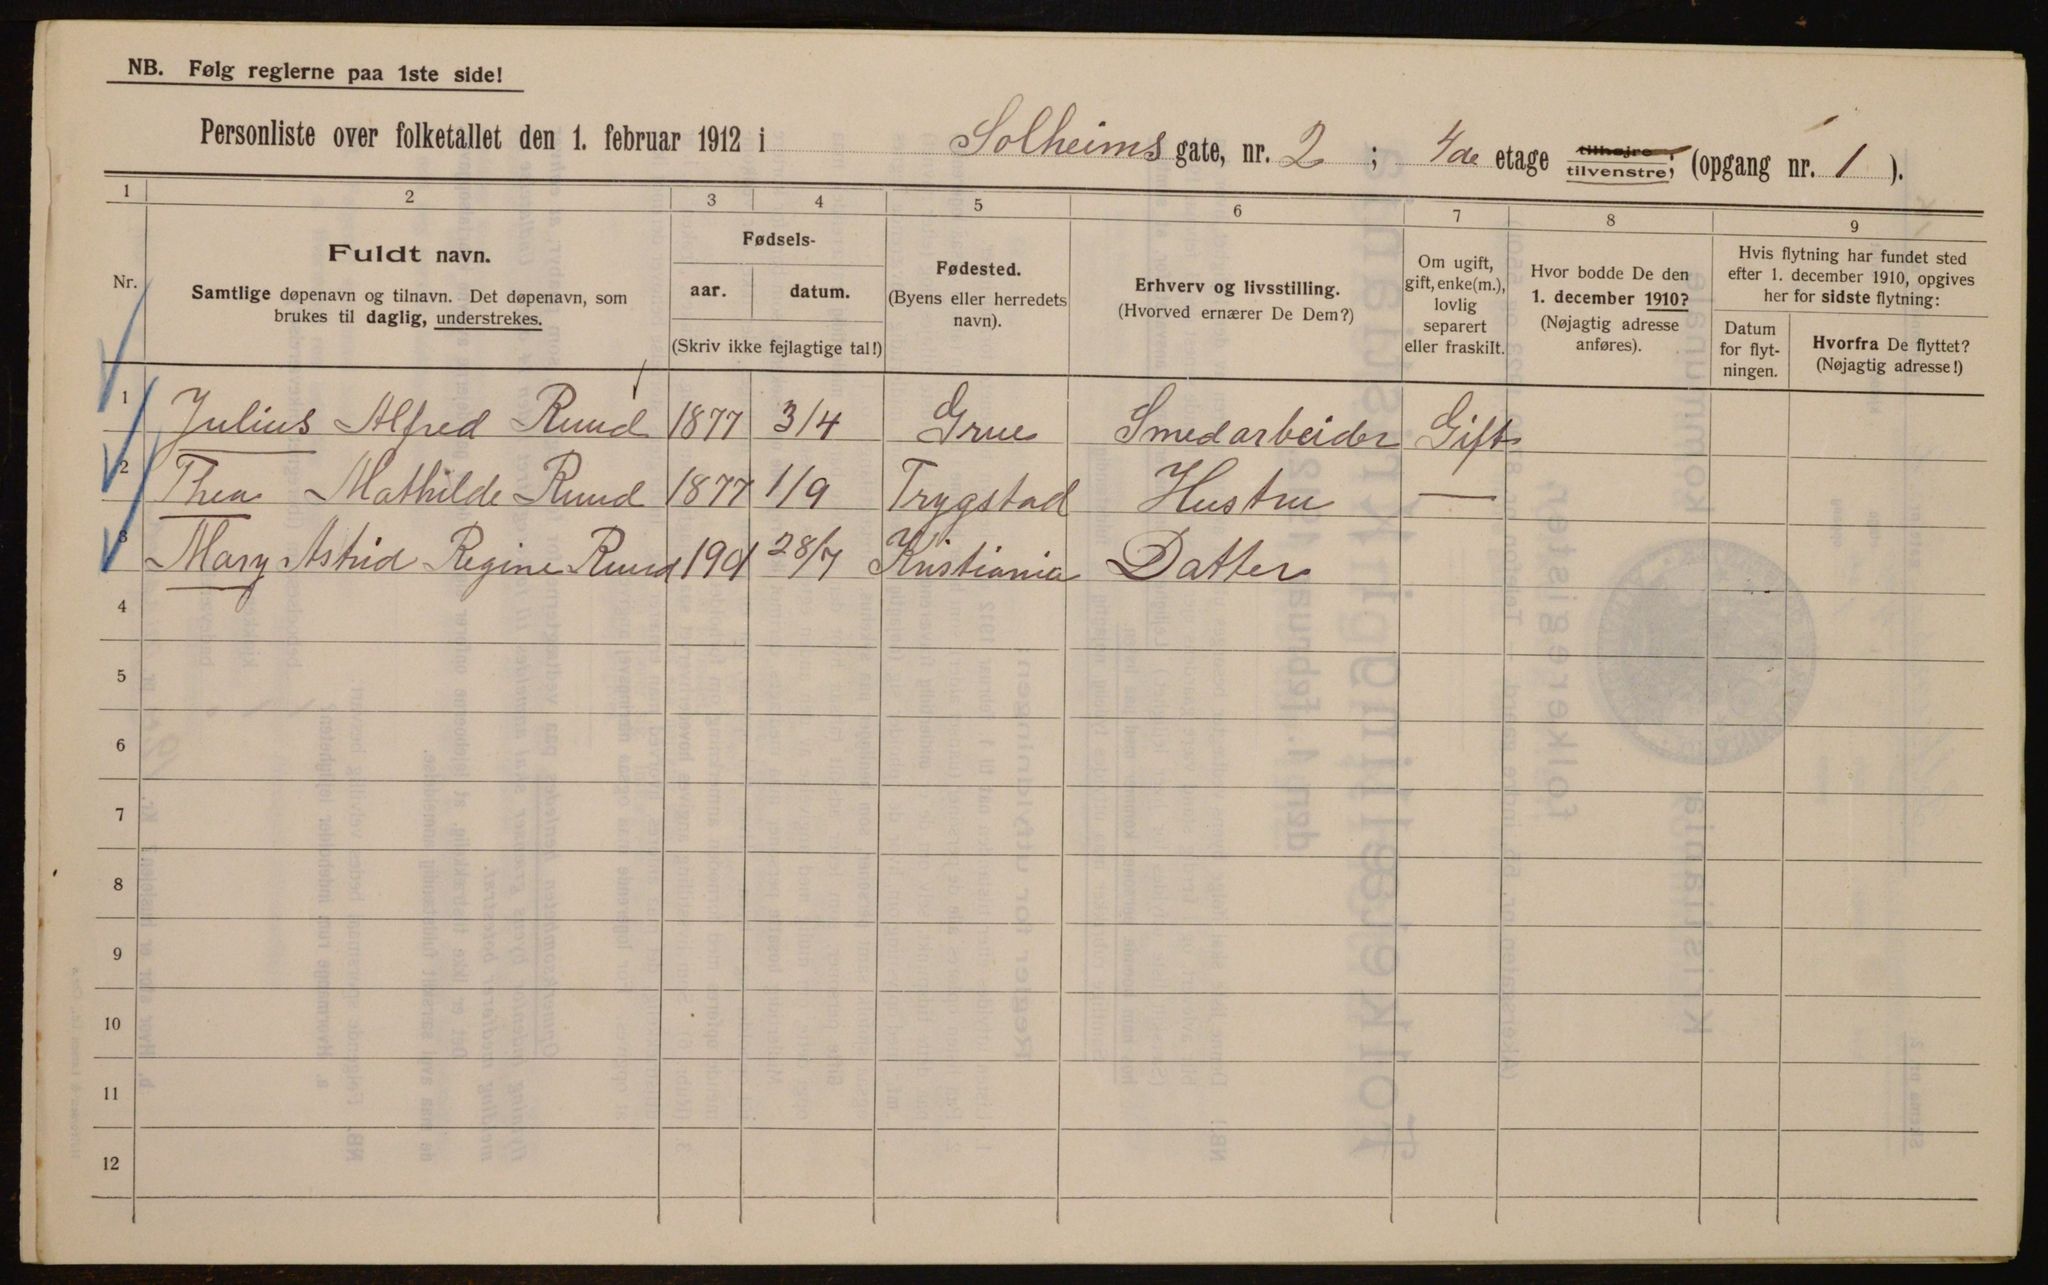 NB. Følg reglerne paa 1ste side!
Personliste over folketallet den 1. februar 1912 i Solheims gate, nr. 2 ; 4de etage tilhøjre, tilvenstre, (opgang nr. 1 ).
1 2 3 4 5 6 7 8 9
Nr.
Fuldt navn.
Samtlige døpenavn og tilnavn. Det døpenavn, som
brukes til daglig, understrekes.
Fødsels-
aar. datum.
(Skriv ikke fejlagtige tal!)
Fødested.
(Byens eller herredets
navn).
Erhverv og livsstilling.
(Hvorved ernærer De Dem?)
Om ugift,
gift, enke(m.),
lovlig
separert
eller fraskilt.
Hvor bodde De den
1. december 1910?
(Nøjagtig adresse
anføres).
Hvis flytning har fundet sted
efter 1. december 1910, opgives
her for sidste flytning:
Datum
for flyt-
ningen.
Hvorfra De flyttet?
(Nøjagtig adresse!)
1 Julius Alfred Ruud 1877 3/4 Grue Smedarbeider Gift
2 Thea Mathilde Ruud 1877 1/9 Trygstad Hustru —
3 Mary Astrid Regine Ruud 1901 28/7 Kristiania Datter
4
5
6
7
8
9
10
11
12